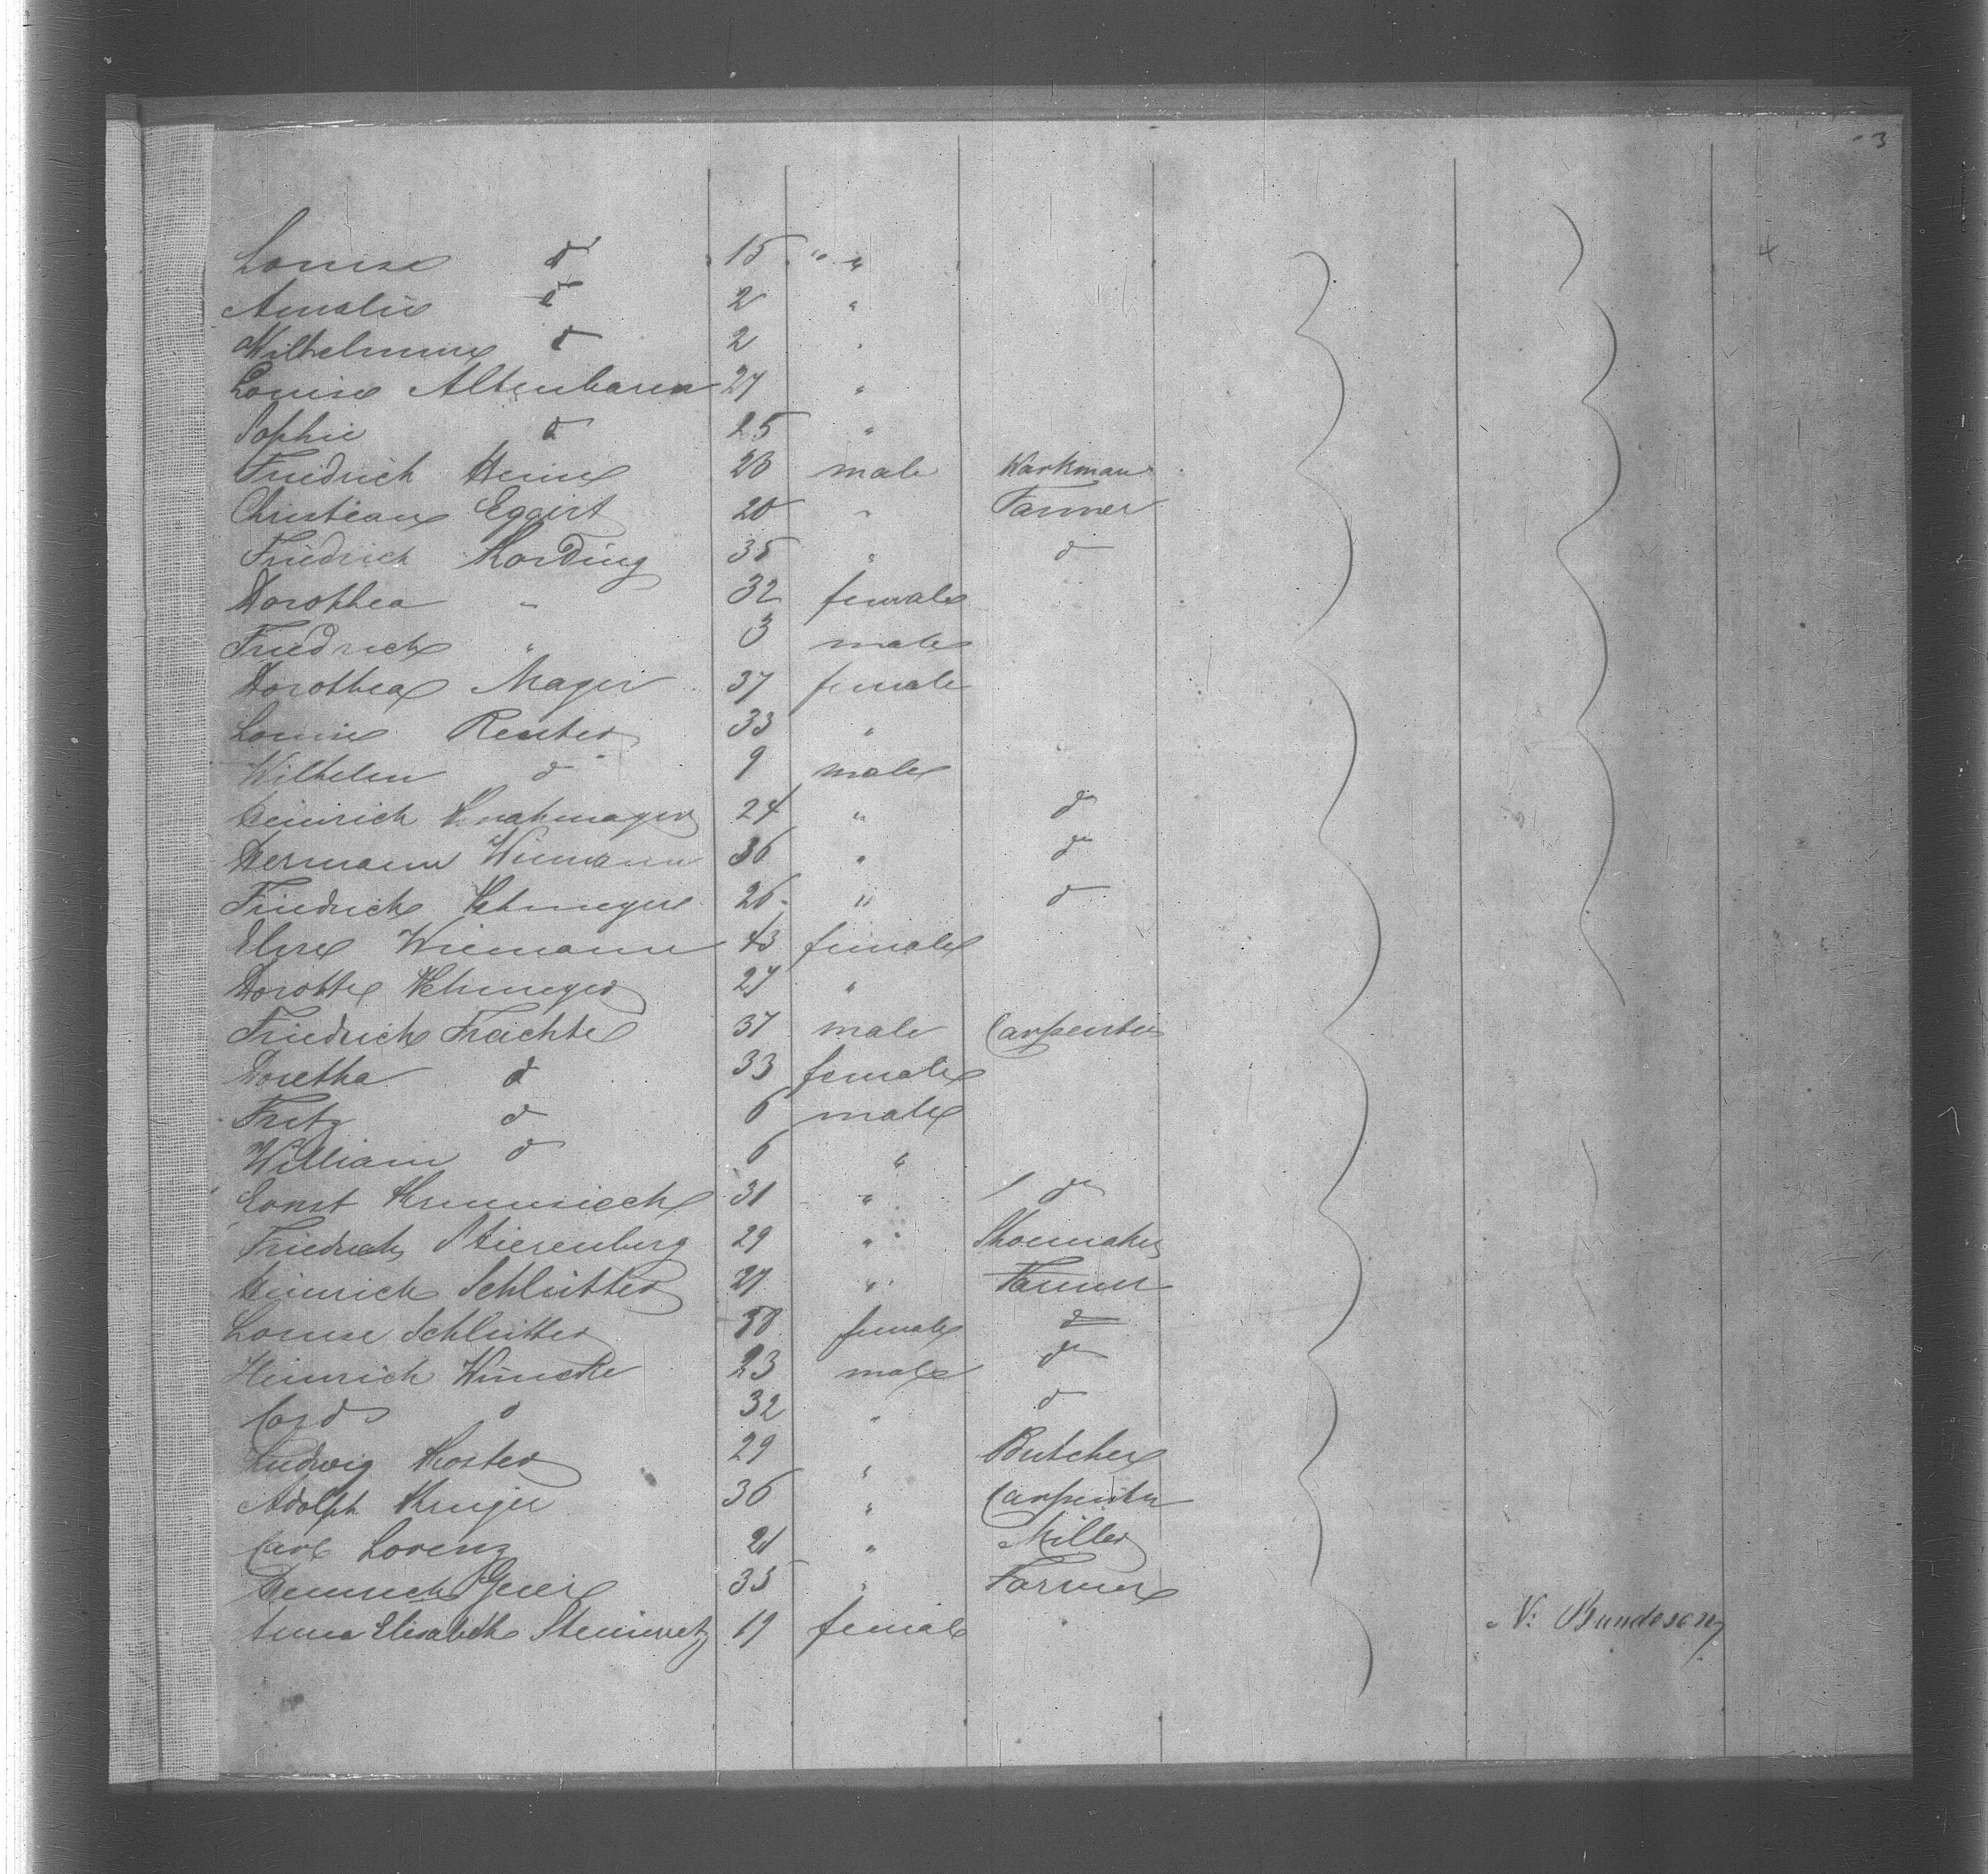 3
Louise d 15 " "
Amalie d 2 "
Wilhelmine d 2 "
Louise Altenbaren 27 "
Sophie d 25 "
Friedrich Heine 23 male Workman
Christian Eggert 20 " Farmer
Friedrich Kording 35 " d
Dorothea " 32 female
Friedrich " 3 male
Dorothea Mager 37 female
Louise Reuter 33 "
Wilhelm d 9 male
Heinrich 24 " d
Hermann Wiemann 36 " d
Friedrich 26 " d
Elise Wiemann 43 female
Dorothe 27 "
Friedrich Frachte 37 male Carpenter
Doretha d 33 female
Fritz d 6 male
William d 6 "
Ernst Krumsieck 31 " d
Friedrich Stierenberg 29 " Shoemaker
Heinrich Schlütter 27 " Farmer
Louise Schlütter female d
Heinrich Wincke 23 male d
Cord d 32 " d
Ludwig Koster 29 " Butcher
Adolph Kruger 36 " Carpenter
Carl Lorenz 21 " Miller
Heinrich Geier 35 " Farmer
Anna Elisabeth 19 female N. Bundesen